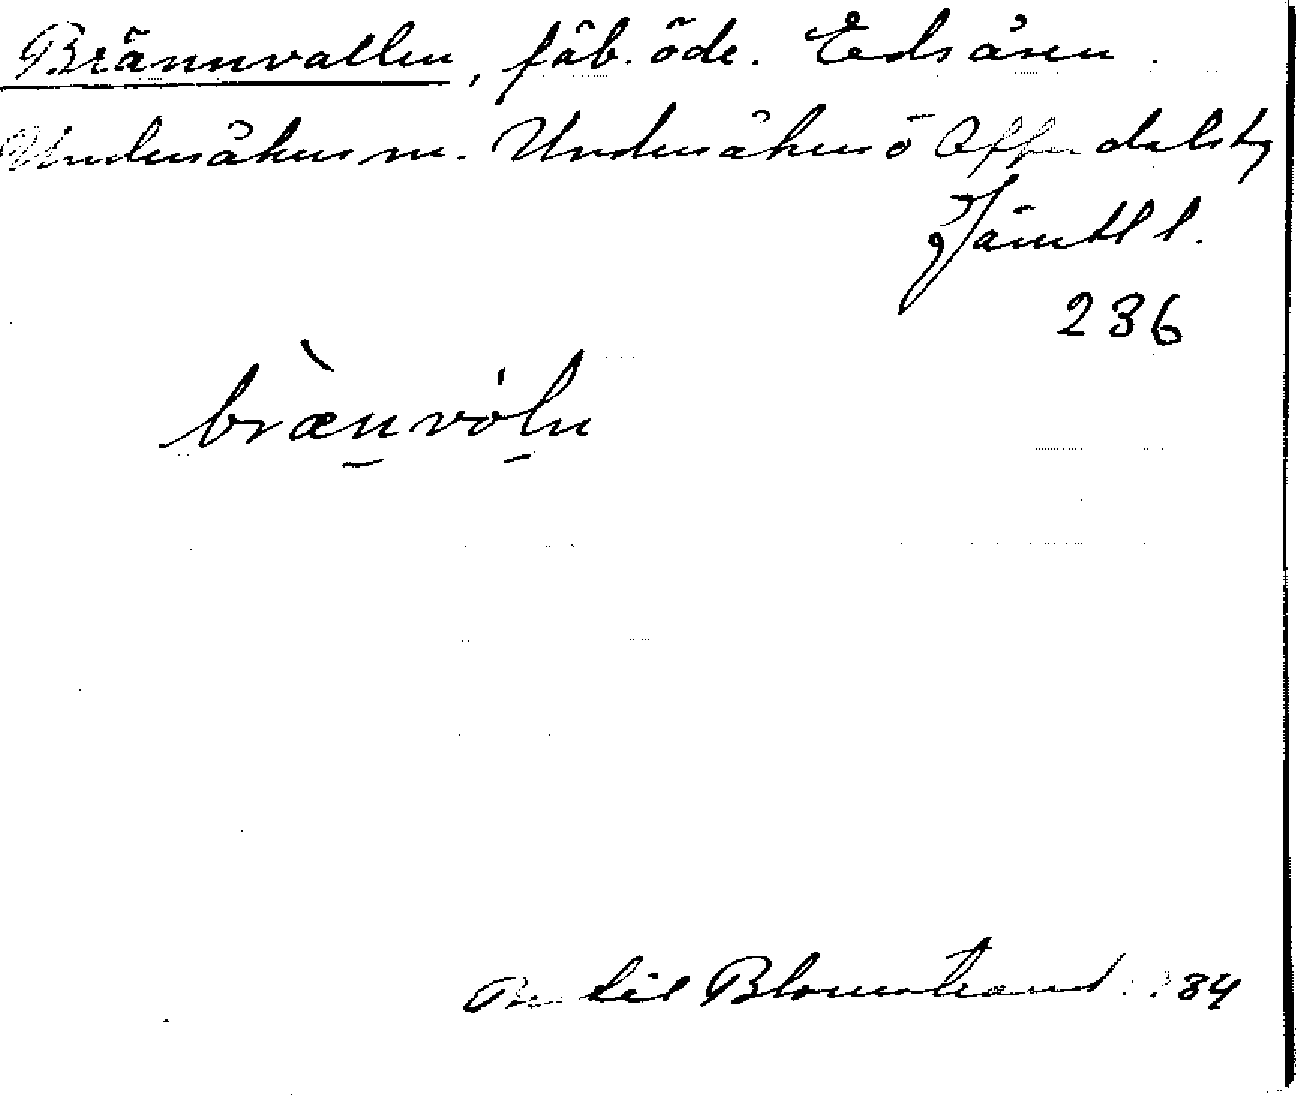 Brännvallen, fäb. öde. Edsåsen.
Undersåkers sn. Undersåkers o Offerdals tg
Jämtl l.
236
bræ̀nvóln
Bertil Blomstrand. 34